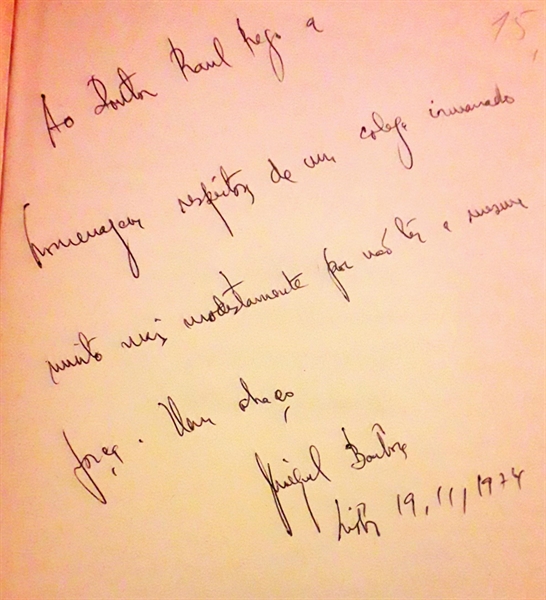 15
Ao Doutor Raul Rego a
homenagem respeitosa de um colega irmanado
muito mais modestamente por não ter a mesma
força. Um abraço
Miguel Barbosa
Lisboa 19, 11, 1974